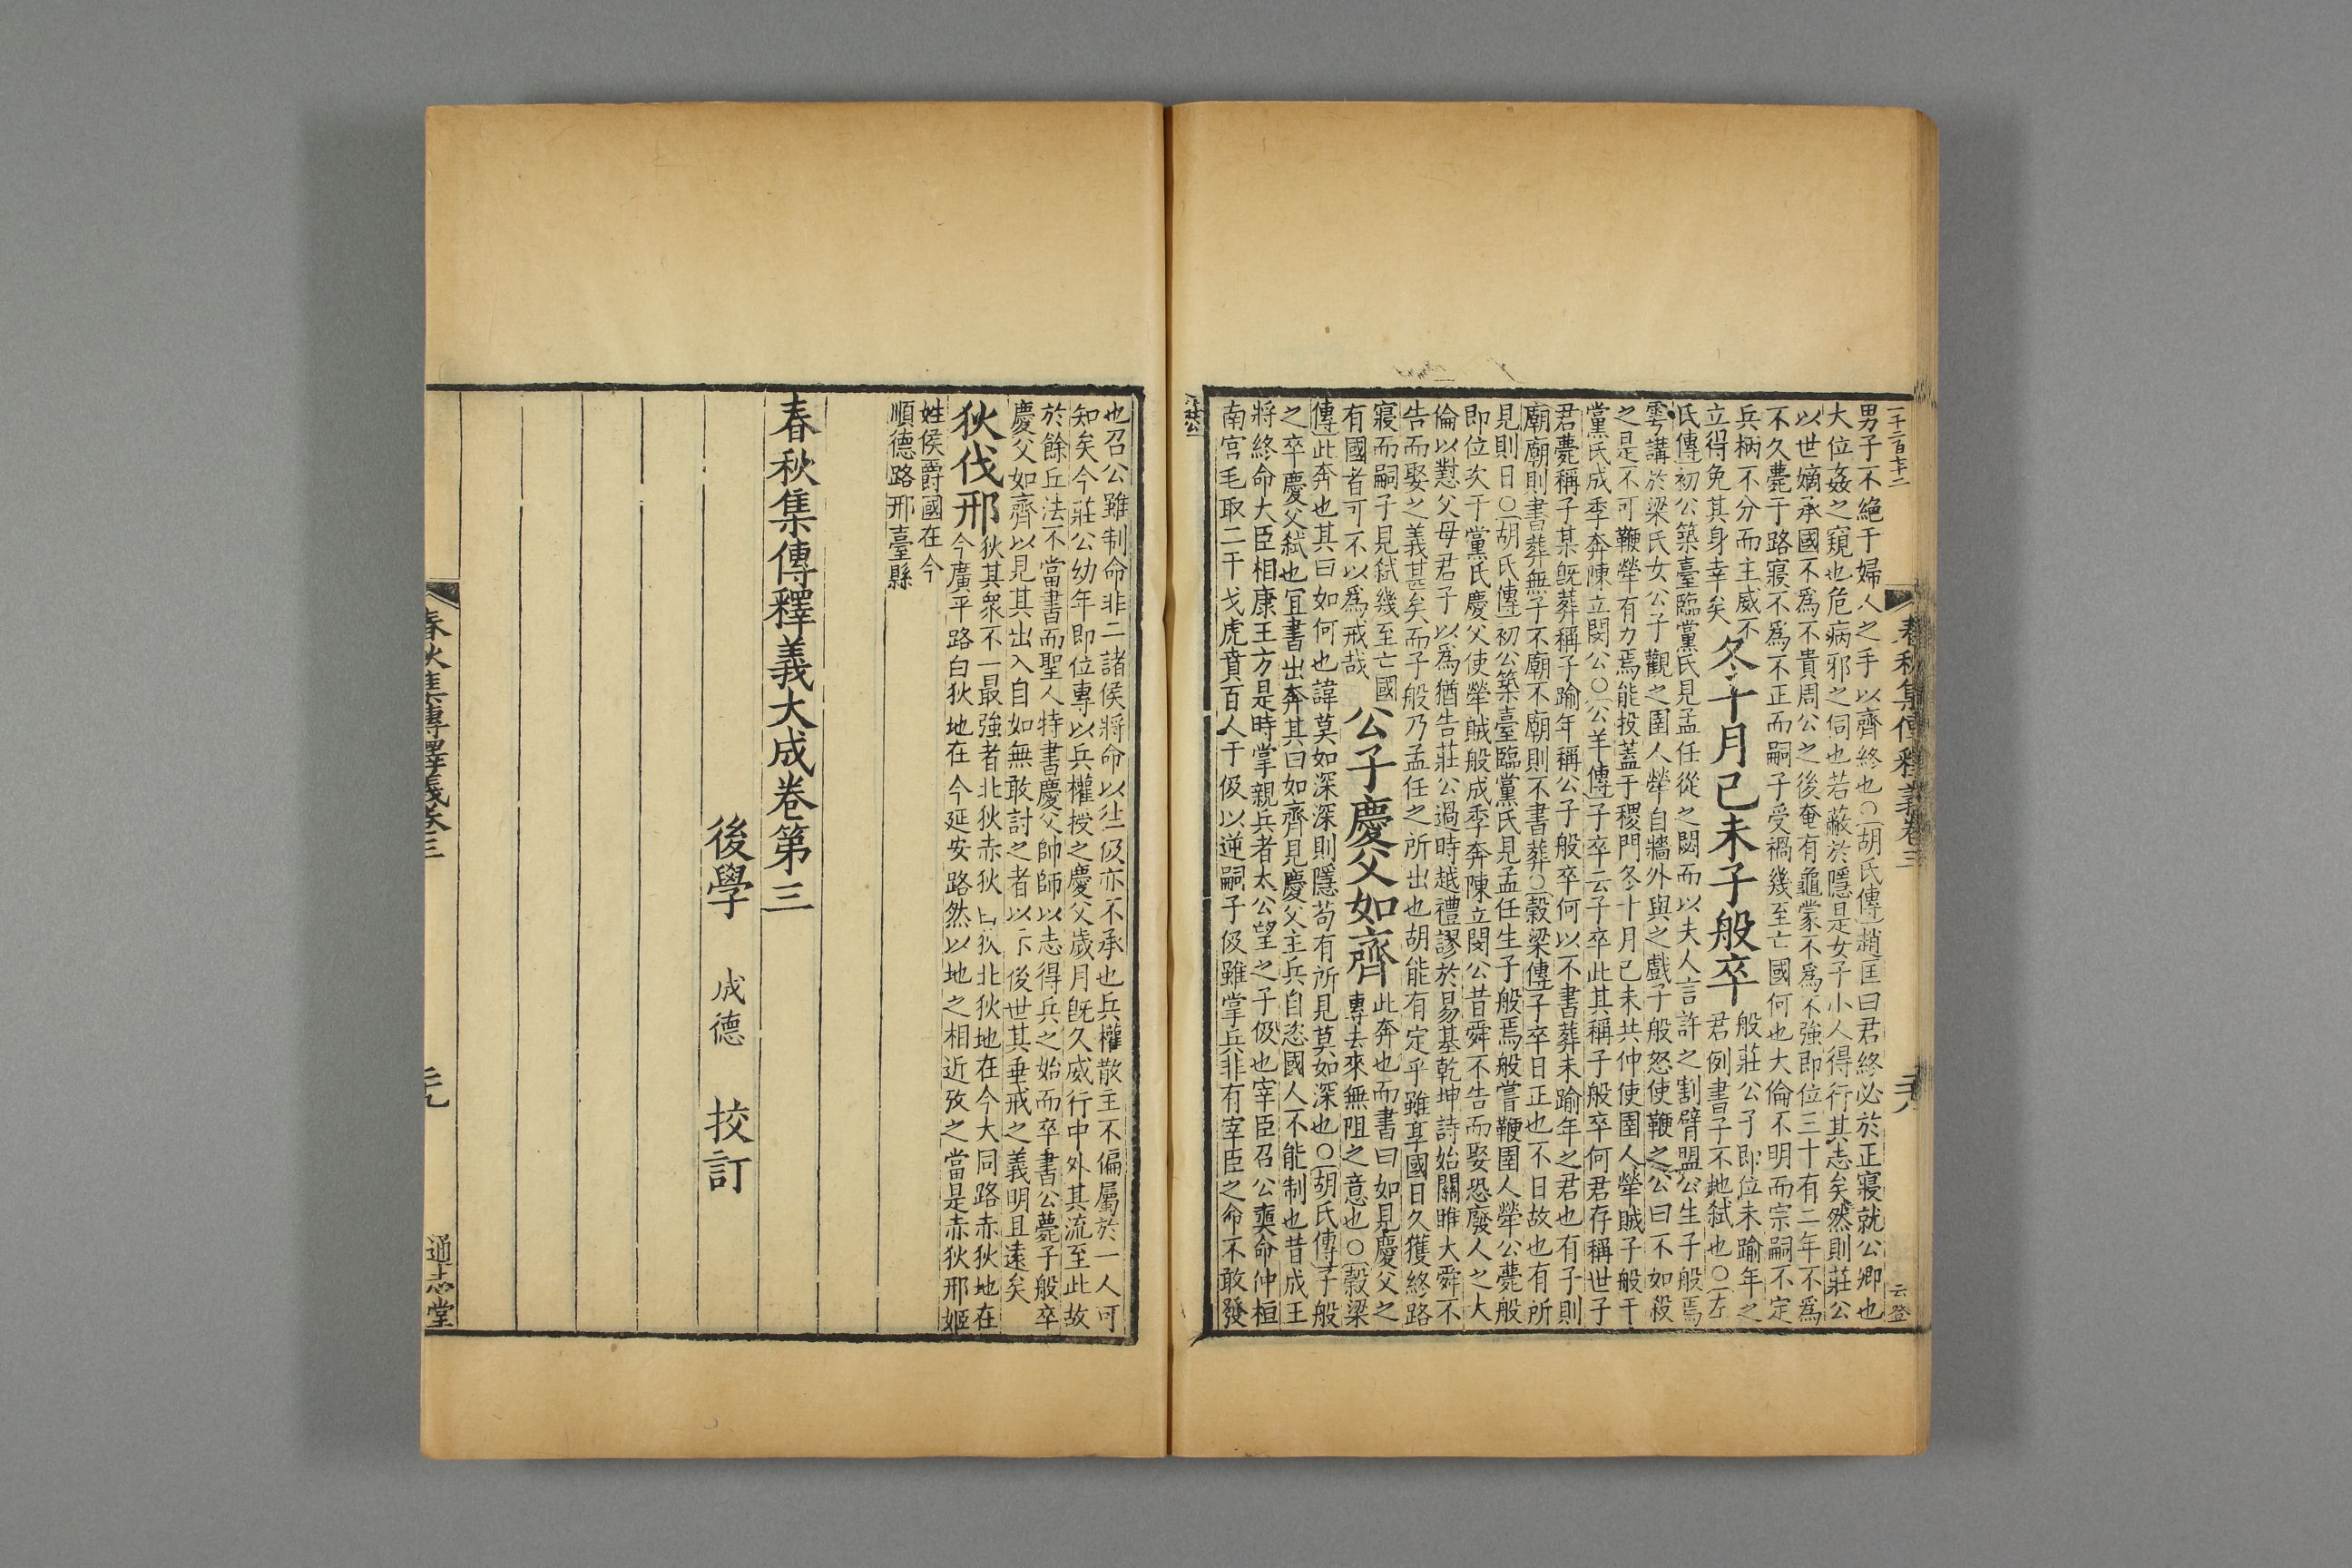 一千二百七十二
春秋集傳釋義卷三
二十八
云登
男子不絕于婦人之手以齊終也○胡氏傳趙匡曰君終必於正寢就公卿也
大位姦之窺也危病邪之伺也若蔽於隱是女子小人得行其志矣然則莊公
以世嫡承國不爲不貴周公之後奄有龜蒙不爲不強即位三十有二年不爲
不久薨于路寢不爲不正而嗣子受禍幾至亡國何也大倫不明而宗嗣不定
兵柄不分而主威不
立得免其身幸矣
冬十月己未子般卒
般莊公子即位未踰年之
君例書子不地弒也○左
氏傳初公築臺臨黨氏見孟任從之閟而以夫人言許之割臂盟公生子般焉
雩講於梁氏女公子觀之圉人犖自牆外與之戲子般怒使鞭之公曰不如殺
之是不可鞭犖有力焉能投蓋于稷門冬十月己未共仲使圉人犖賊子般于
黨氏成季奔陳立閔公○公羊傳子卒云子卒此其稱子般卒何君存稱世子
君薨稱子某既葬稱子踰年稱公子般卒何以不書葬未踰年之君也有子則
廟廟則書葬無子不廟不廟則不書葬○穀梁傳子卒日正也不日故也有所
見則日○胡氏傳初公築臺臨黨氏見孟任生子般焉般嘗鞭圉人犖公薨般
即位次于黨氏慶父使犖賊般成季奔陳立閔公昔舜不告而娶恐廢人之大
倫以懟父母君子以爲猶告莊公過時越禮謬於易基乾坤詩始關雎大舜不
告而娶之義甚矣而子般乃孟任之所出也胡能有定乎雖享國日久獲終路
寢而嗣子見弒幾至亡國
有國者可不以爲戒哉
公子慶父如齊
此奔也而書曰如見慶父之
專去來無阻之意也○穀梁
傳此奔也其曰如何也諱莫如深深則隱苟有所見莫如深也○胡氏傳子般
之卒慶父弒也宜書出奔其曰如齊見慶父主兵自恣國人不能制也昔成王
將終命大臣相康王方是時掌親兵者太公望之子伋也宰臣召公奭命仲桓
南宮毛取二干戈虎賁百人于伋以逆嗣子伋雖掌兵非有宰臣之命不敢發
也召公雖制命非二諸侯將命以往伋亦不承也兵權散主不偏屬於一人可
知矣今莊公幼年即位專以兵權授之慶父歲月既久威行中外其流至此故
於餘丘法不當書而聖人特書慶父帥師以志得兵之始而卒書公薨子般卒
慶父如齊以見其出入自如無敢討之者以示後世其垂戒之義明且遠矣
狄伐邢
狄其衆不一最強者北狄赤狄白狄北狄地在今大同路赤狄地在
今廣平路白狄地在今延安路然以地之相近攷之當是赤狄邢姬
姓侯爵國在今
順德路邢臺縣
春秋集傳釋義大成卷第三
後學 成德 挍訂
春秋集傳釋義卷三
二十九
通志堂